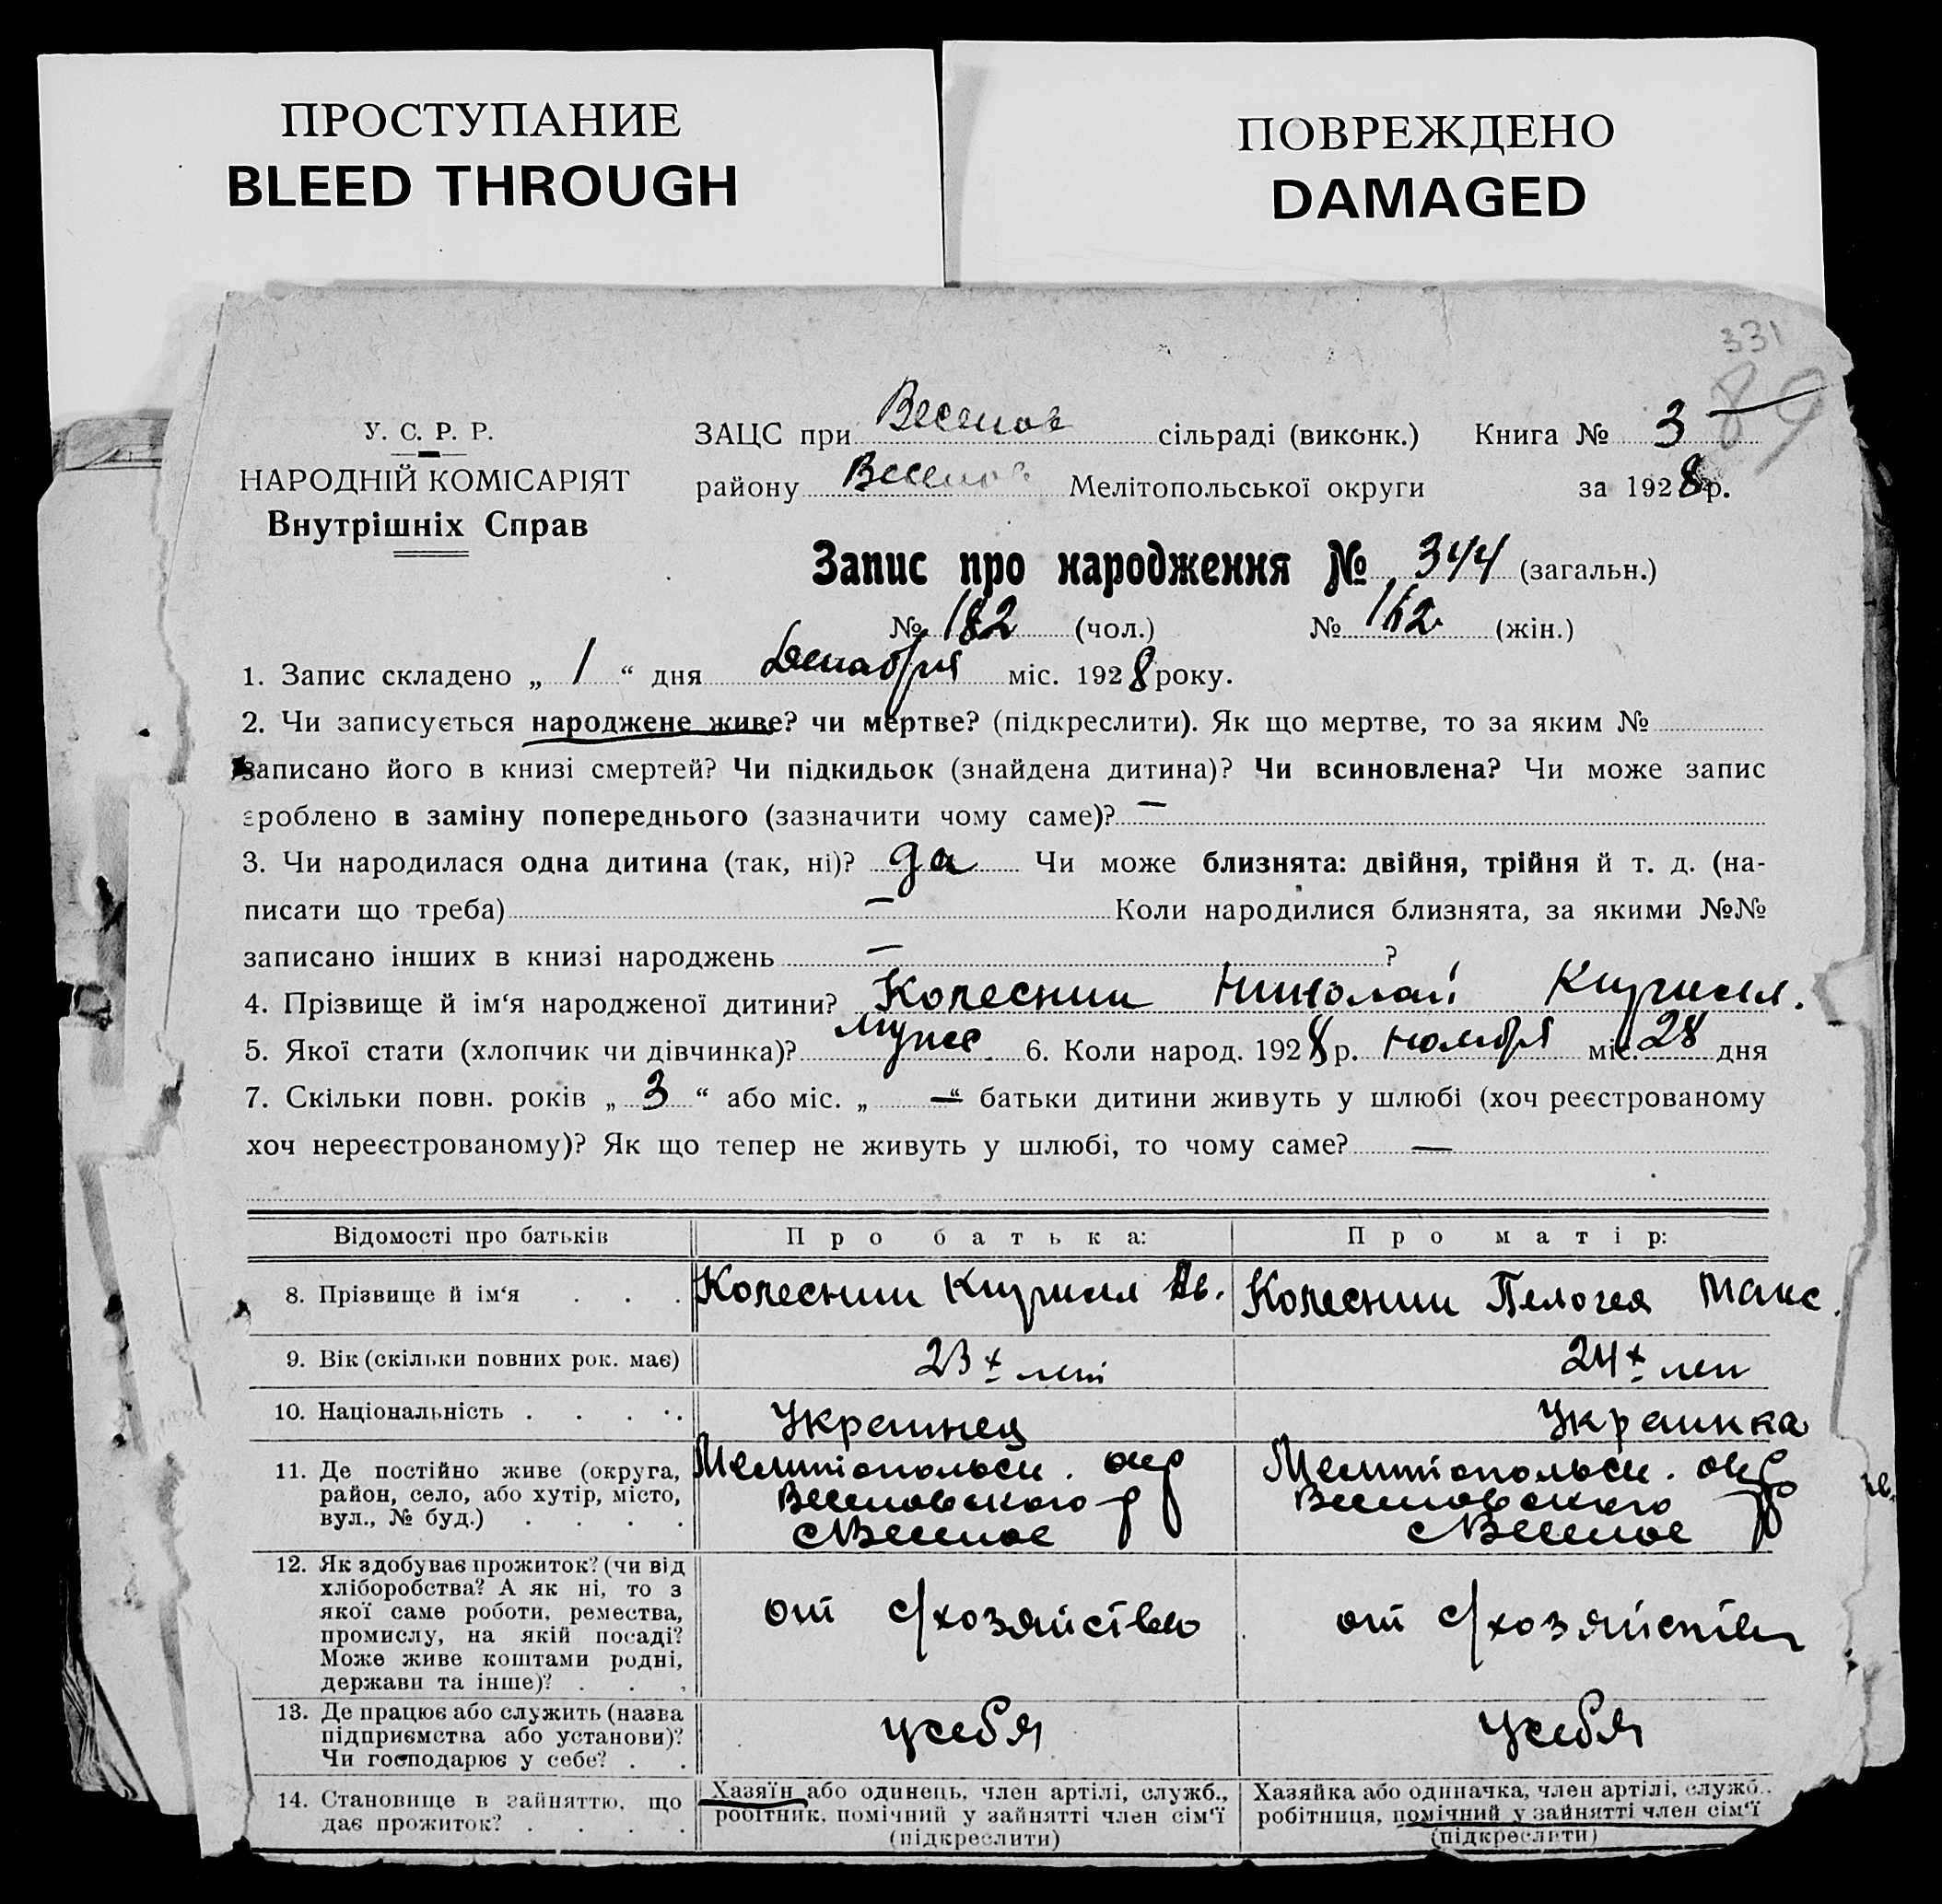 ПРОСТУПАНИЕ
BLEED THROUGH
ПОВРЕЖДЕНО
DAMAGED
331
89
У. С. Р. Р.
НАРОДНІЙ КОМІСАРІЯТ
Внутрішніх Справ
ЗАЦС при Веселов сільраді (виконк.) Книга № 3
району Веселов Мелітопольської округи за 1928 р.
Запис про народження № 344 (загальн.)
№ 182 (чол.) № 162 (жін.)
1. Запис складено „ 1 “ дня Декабря міс. 1928 року.
2. Чи записується народжене живе? чи мертве? (підкреслити). Як що мертве, то за яким №
записано його в книзі смертей? Чи підкидьок (знайдена дитина)? Чи всиновлена? Чи може запис
зроблено в заміну попереднього (зазначити чому саме)? —
3. Чи народилася одна дитина (так, ні)? да Чи може близнята: двійня, трійня й т. д. (на-
писати що треба) — Коли народилися близнята, за якими №№
записано інших в книзі народжень — ?
4. Прізвище й ім‘я народженої дитини? Колесник Николай Кирилл.
5. Якої стати (хлопчик чи дівчинка)? мужс. 6. Коли народ. 1928 р. ноября міс. 28 дня
7. Скільки повн. років „ 3 “ або міс. „ — “ батьки дитини живуть у шлюбі (хоч реєстрованому
хоч нереєстрованому)? Як що тепер не живуть у шлюбі, то чому саме? —
Відомості про батьків Про батька: Про матір:
8. Прізвище й ім‘я . . . Колесник Кирилл Ив. Колесник Пелогея Макс.
9. Вік (скільки повних рок. має) 23 х лет 24 х лет
10. Національність . . . . Украинец Украинка
11. Де постійно живе (округа,
район, село, або хутір, місто,
вул., № буд.) . . . .
Мелитопольск. окр
Веселовского р
с Веселое
Мелитопольск. окр
Веселовского р
с Веселое
12. Як здобуває прожиток? (чи від
хліборобства? А як ні, то з
якої саме роботи, ремества,
промислу, на якій посаді?
Може живе коштами родні,
держави та інше)? . . .
от с/хозяйства
от с/хозяйства
13. Де працює або служить (назва
підприємства або установи)?
Чи господарює у себе? . .
у себя
у себя
14. Становище в зайняттю, що
дає прожиток? . . . .
Хазяїн або одинець, член артілі, служб.,
робітник, помічний у зайнятті член сім‘ї
(підкреслити)
Хазяйка або одиначка, член артілі, служб.,
робітниця, помічний у зайнятті член сім‘ї
(підкреслити)